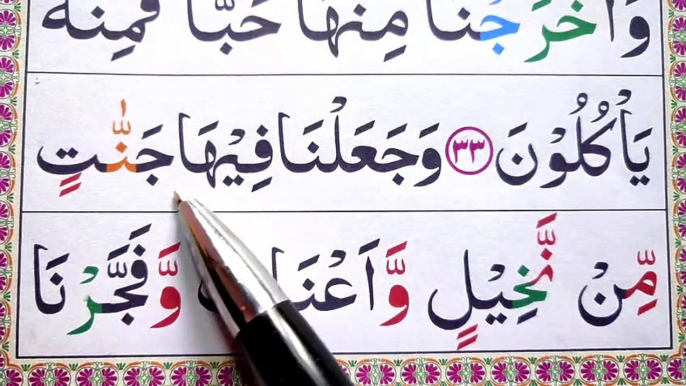 وَاَخْرَجْنَا مِنْهَا حَبًّا فَمِنْهُ
يَاْكُلُوْنَ ٣٣ وَجَعَلْنَا فِيْهَا جَنّٰتٍ
مِّنْ نَّخِيْلٍ وَّاَعْنَابٍ وَّفَجَّرْنَا